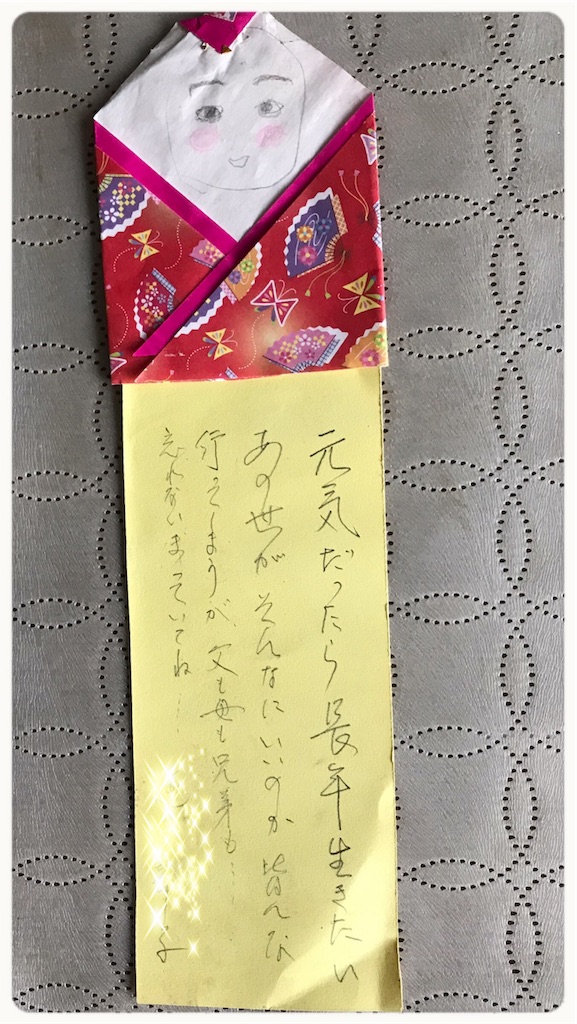 元気だったら長年生きたい
あの世がそんなにいいのか皆んな
行ってしまうが父も母も兄弟も…
忘れないまっていてね…
子